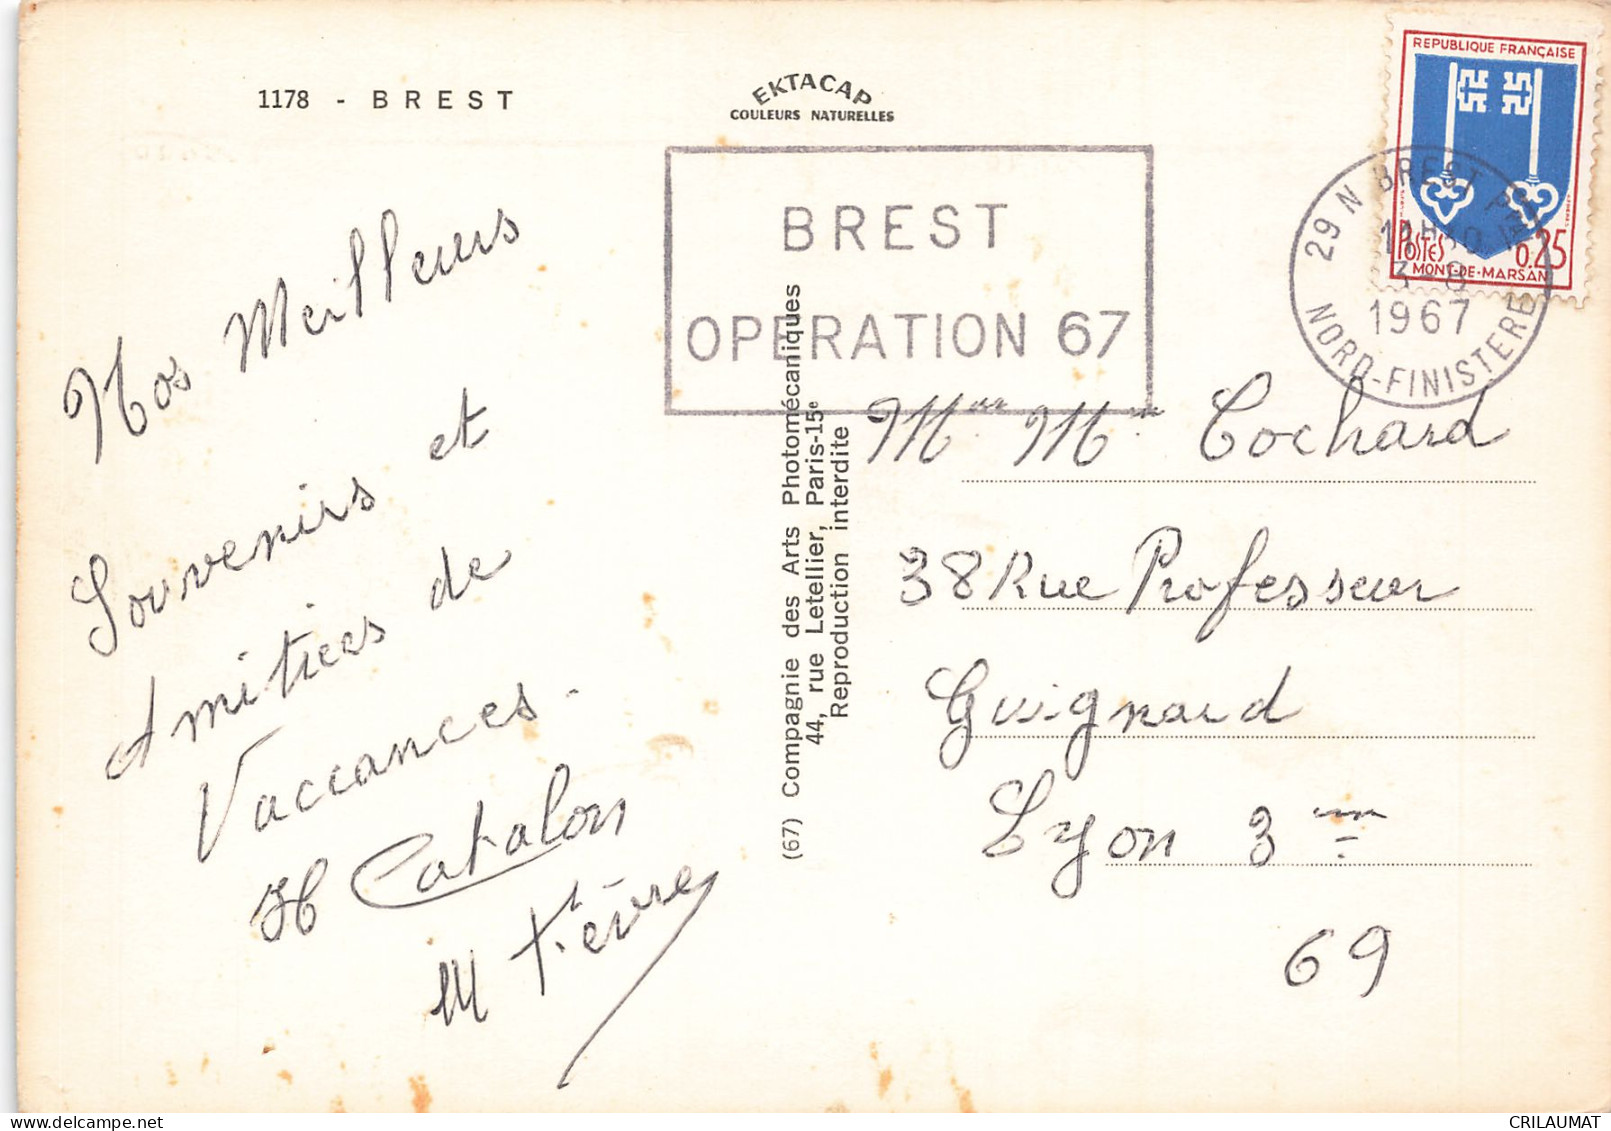 1178 - BREST
EKTACAP
COULEURS NATURELLES
REPUBLIQUE FRANÇAISE
POSTES 0,25
MONT-DE-MARSAN
29 N BREST
3-8
1967
NORD-FINISTERE
BREST
OPERATION 67
Nos Meilleurs
Souvenirs et
Amitiees de
Vaccances.
H Catalon
M Fièvre
(67) Compagnie des Arts Photomécaniques
44, rue Letellier, Paris-15e
Reproduction interdite
Mr Mme Cochard
38 Rue Professeur
Guignard
Lyon 3 me
69
CRILAUMAT